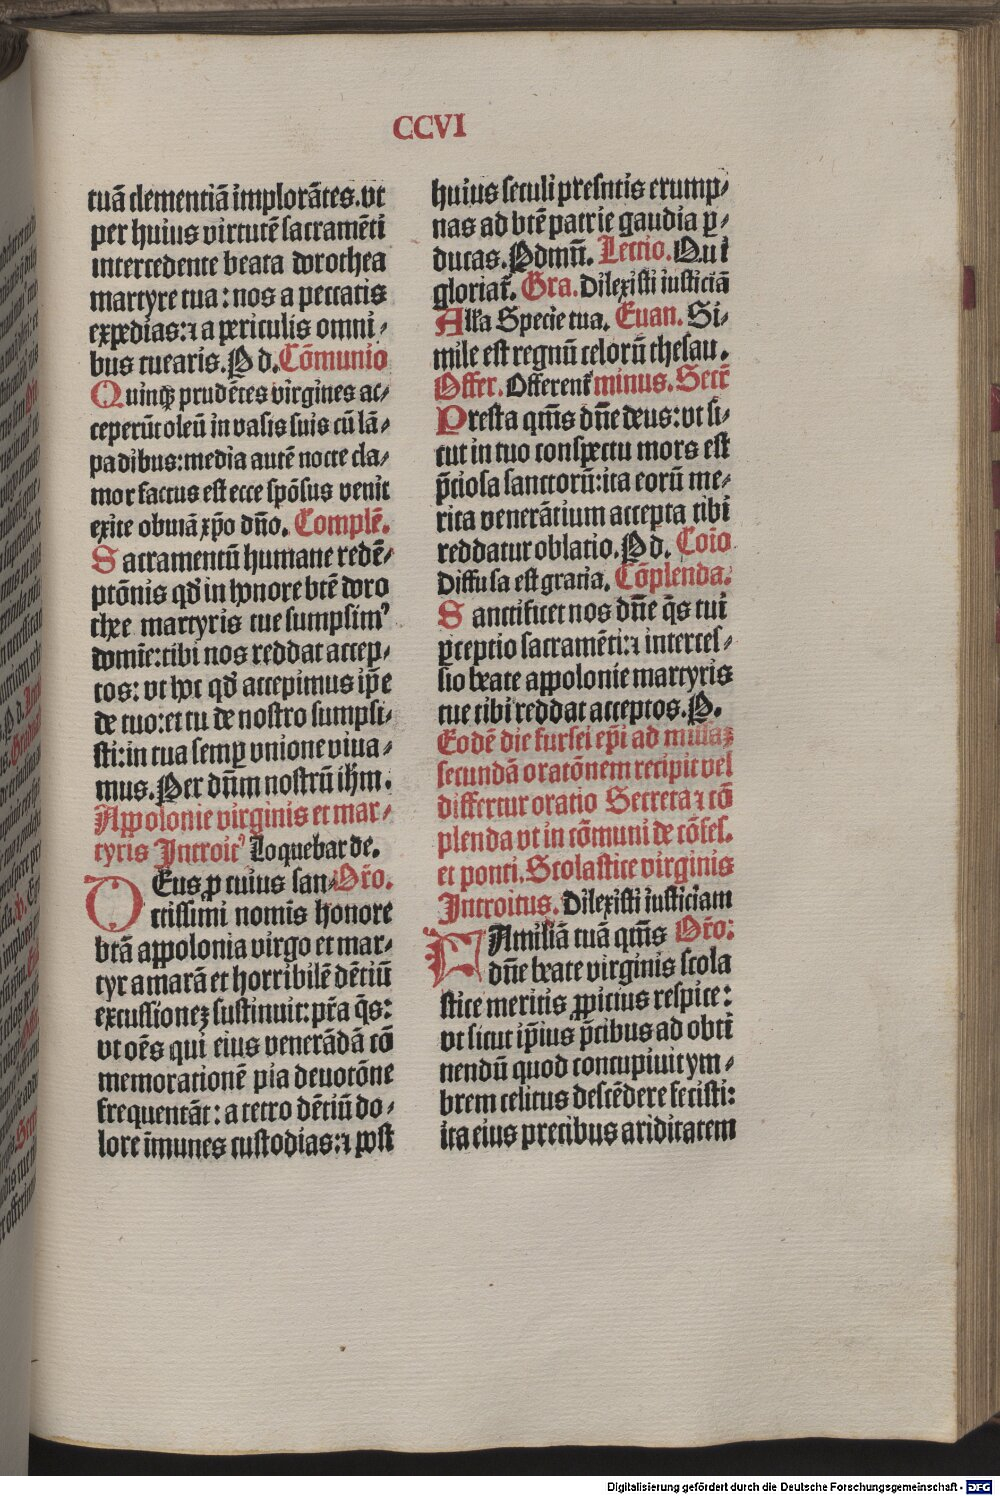 CCVI
tuā clementiā implorātes. vt
per huius virtutē sacramēti
intercedente beata dorothea
martyre tua: nos a peccatis
expedias: ⁊ a periculis omni⸗
bus tuearis. P d. Cōmunio
Quinqꝫ prudētes virgines ac⸗
ceperūt oleū in vasis suis cū lā⸗
padibus: media autē nocte cla⸗
mor factus est ecce spōsus venit
exite obuiā xp̄o dn̄o. Complē.
Sacramentū humane redē⸗
ptōnis qd̄ in honore btē doro
thee martyris tue sumpsimꝰ
domīe: tibi nos reddat accep⸗
tos: vt hoc qd̄ accepimus ip̄e
de tuo: et tu de nostro sumpsi⸗
sti: in tua semꝑ vnione viua⸗
mus. Per dn̄m nostrū ihm̄.
Appolonie virginis et mar⸗
tyris Introitꝰ Loquebar de.
DEus ꝓ cuius san⸗ Or̄o.
ctissimi nomīs honore
btā appolonia virgo et mar⸗
tyr amarā et horribilē dētiū
excussionez sustinuit: pr̄a q̄s:
vt oēs qui eius venerādā cō
memorationē pia deuotōne
frequentāt: a tetro dētiū do⸗
lore īmunes custodias: ⁊ post
huius seculi presn̄tis erump⸗
nas ad vtē patrie gaudia ꝑ⸗
ducas. Pdmn̄. Lectio. Qui
gloriat̄. Gra. Dilexisti iusticiā
Alla Specie tua. Euan. Si⸗
mile est regnū celorū thesau.
Offer. Offerent̄ minus. Secr̄
Presta qm̄s dn̄e deus: vt si⸗
cut in tuo conspectu mors est
p̄ciosa sanctorū: ita eorū me⸗
rita venerātium accepta tibi
reddatur oblatio. P d. Cōio
Diffusa est gratia. Cōplenda:
Sanctificet nos dn̄e q̄s tui
ꝑceptio sacramēti: ⁊ interces⸗
sio beate appolonie martyris
tue tibi reddat acceptos. P.
Eodē die fursei ep̄i ad missaꝫ
secundā oratōnem recipit vel
differtur oratio Secreta ⁊ cō
plenda vt in cōmuni de cōfes.
et ponti. Scolastice virginis
Introitus. Dilexisti iusticiam
FAmiliā tuā qm̄s Or̄o:
dn̄e beate virginis scola
stice meritis ꝓpicius respice:
vt sicut ip̄ius p̄cibus ad obti
nendū quod concupiuit ym⸗
brem celitus descēdere fecisti:
ita eius precibus ariditatem
Digitalisierung gefördert durch die Deutsche Forschungsgemeinschaft - DFG